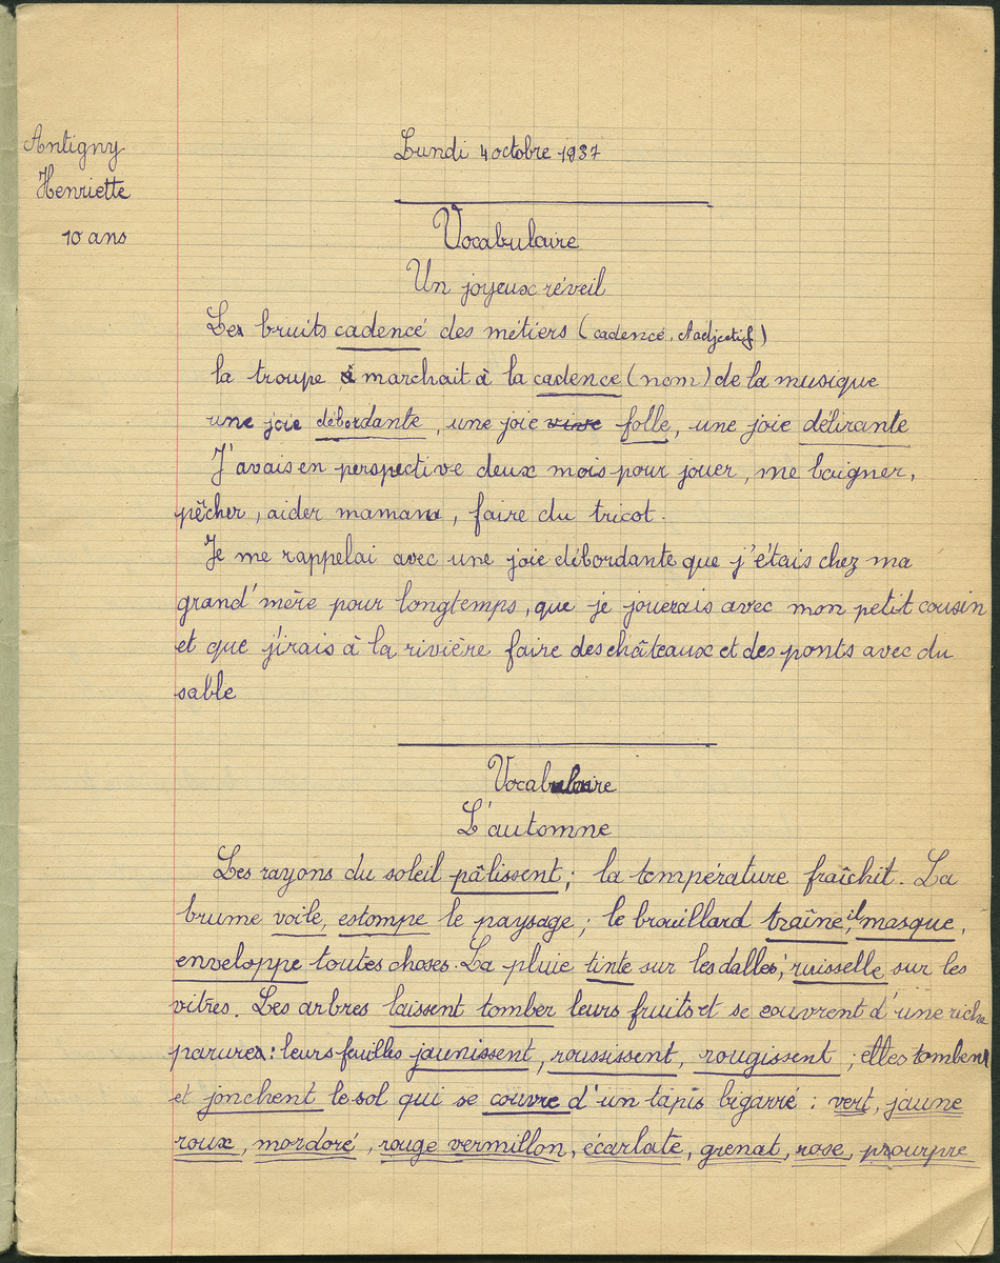 Antigny
Henriette
10 ans
Lundi 4 octobre 1937
Vocabulaire
Un joyeux réveil
Les bruits cadencé des métiers (cadencé, adjectif)
la troupe marchait à la cadence (nom) de la musique
une joie débordante, une joie vive folle, une joie délirante
J'avais en perspective deux mois pour jouer, me baigner,
pêcher, aider maman, faire du tricot.
Je me rappelai avec une joie débordante que j'étais chez ma
grand'mère pour longtemps, que je jouerais avec mon petit cousin
et que j'irais à la rivière faire des châteaux et des ponts avec du
sable
Vocabulaire
L'automne
Les rayons du soleil pâlissent; la température fraîchit. La
brume voile, estompe le paysage; le brouillard traîne, il masque,
enveloppe toutes choses. La pluie tinte sur les dalles, ruisselle sur les
vitres. Les arbres laissent tomber leurs fruits et se couvrent d'une riche
parure: leurs feuilles jaunissent, roussissent, rougissent; elles tombent
et jonchent le sol qui se couvre d'un tapis bigarré: vert, jaune
roux, mordoré, rouge vermillon, écarlate, grenat, rose, pourpre